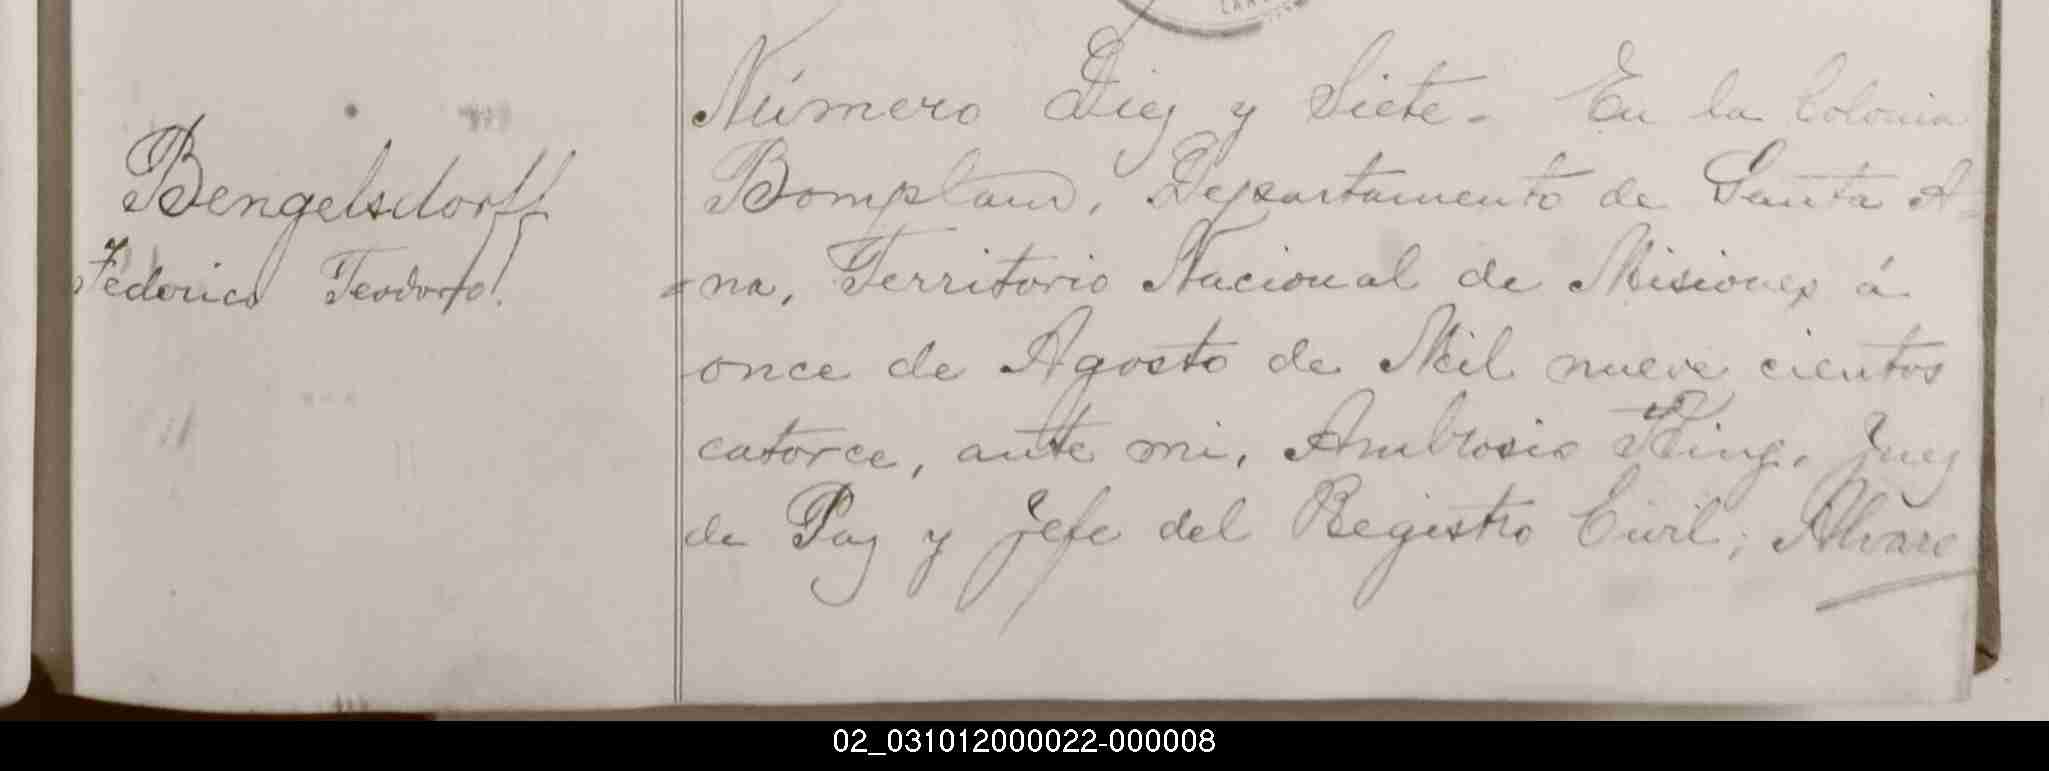 Bengelsdorff
Federico Teodorfo.
Número Diez y Siete. En la Colonia
Bompland, Departamento de Santa A-
=na, Territorio Nacional de Misiones á
once de Agosto de Mil nueve cientos
catorce, ante mi, Ambrosio King, Juez
de Paz y Jefe del Registro Civil; Alvaro
02_031012000022-000008